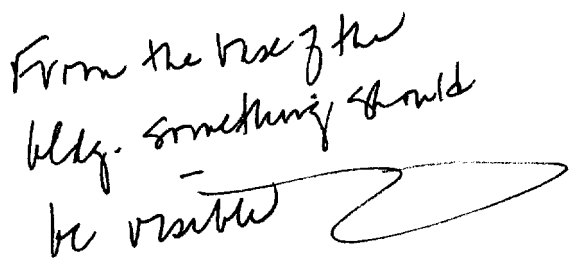 From the base of the
bldg. something should
be visible